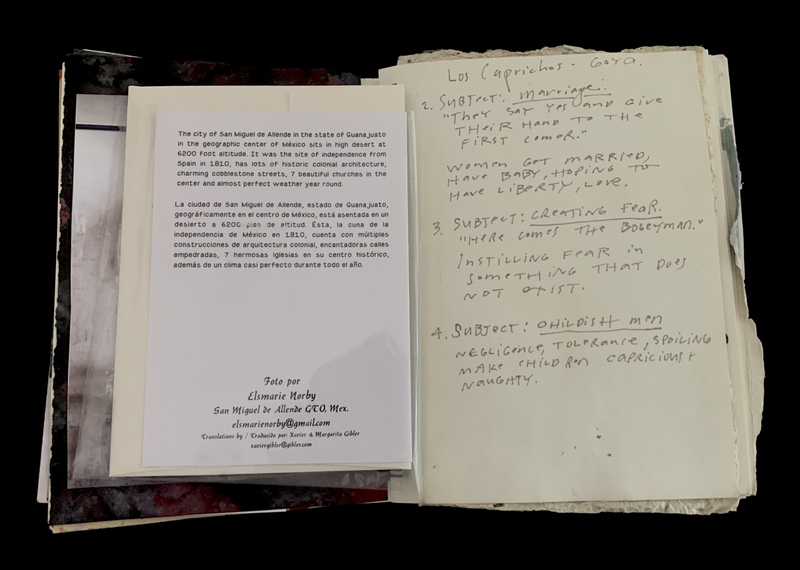 The city of San Miguel de Allende in the state of Guanajuato
in the geographic center of México sits in high desert at
6200 foot altitude. It was the site of independence from
Spain in 1810, has lots of historic colonial architecture,
charming cobblestone streets, 7 beautiful churches in the
center and almost perfect weather year round.
La ciudad de San Miguel de Allende, estado de Guanajuato,
geográficamente en el centro de México, está asentada en un
desierto a 6200 pies de altitud. Ésta, la cuna de la
independencia de México en 1810, cuenta con múltiples
construcciones de arquitectura colonial, encantadoras calles
empedradas, 7 hermosas iglesias en su centro histórico,
además de un clima casi perfecto durante todo el año.
Foto por
Elsmarie Norby
San Miguel de Allende GTO, Mex.
elsmarienorby@gmail.com
Translations by / Traducido por: Xavier & Margarita Gibler
xaviergibler@gibler.com
Los Caprichos - Goya.
2. SUBJECT: marriage.
"THEY SAY YES AND GIVE
THEIR HAND TO THE
FIRST COMER."
WOMEN GET MARRIED,
HAVE BABY, HOPING TO
HAVE LIBERTY, LOVE.
3. SUBJECT: CREATING FEAR.
"HERE COMES THE BOGEYMAN."
INSTILLING FEAR IN
SOMETHING THAT DOES
NOT EXIST.
4. SUBJECT: CHILDISH men
NEGLIGENCE, TOLERANCE, SPOILING
MAKE CHILDREN CAPRICIOUS +
NAUGHTY.